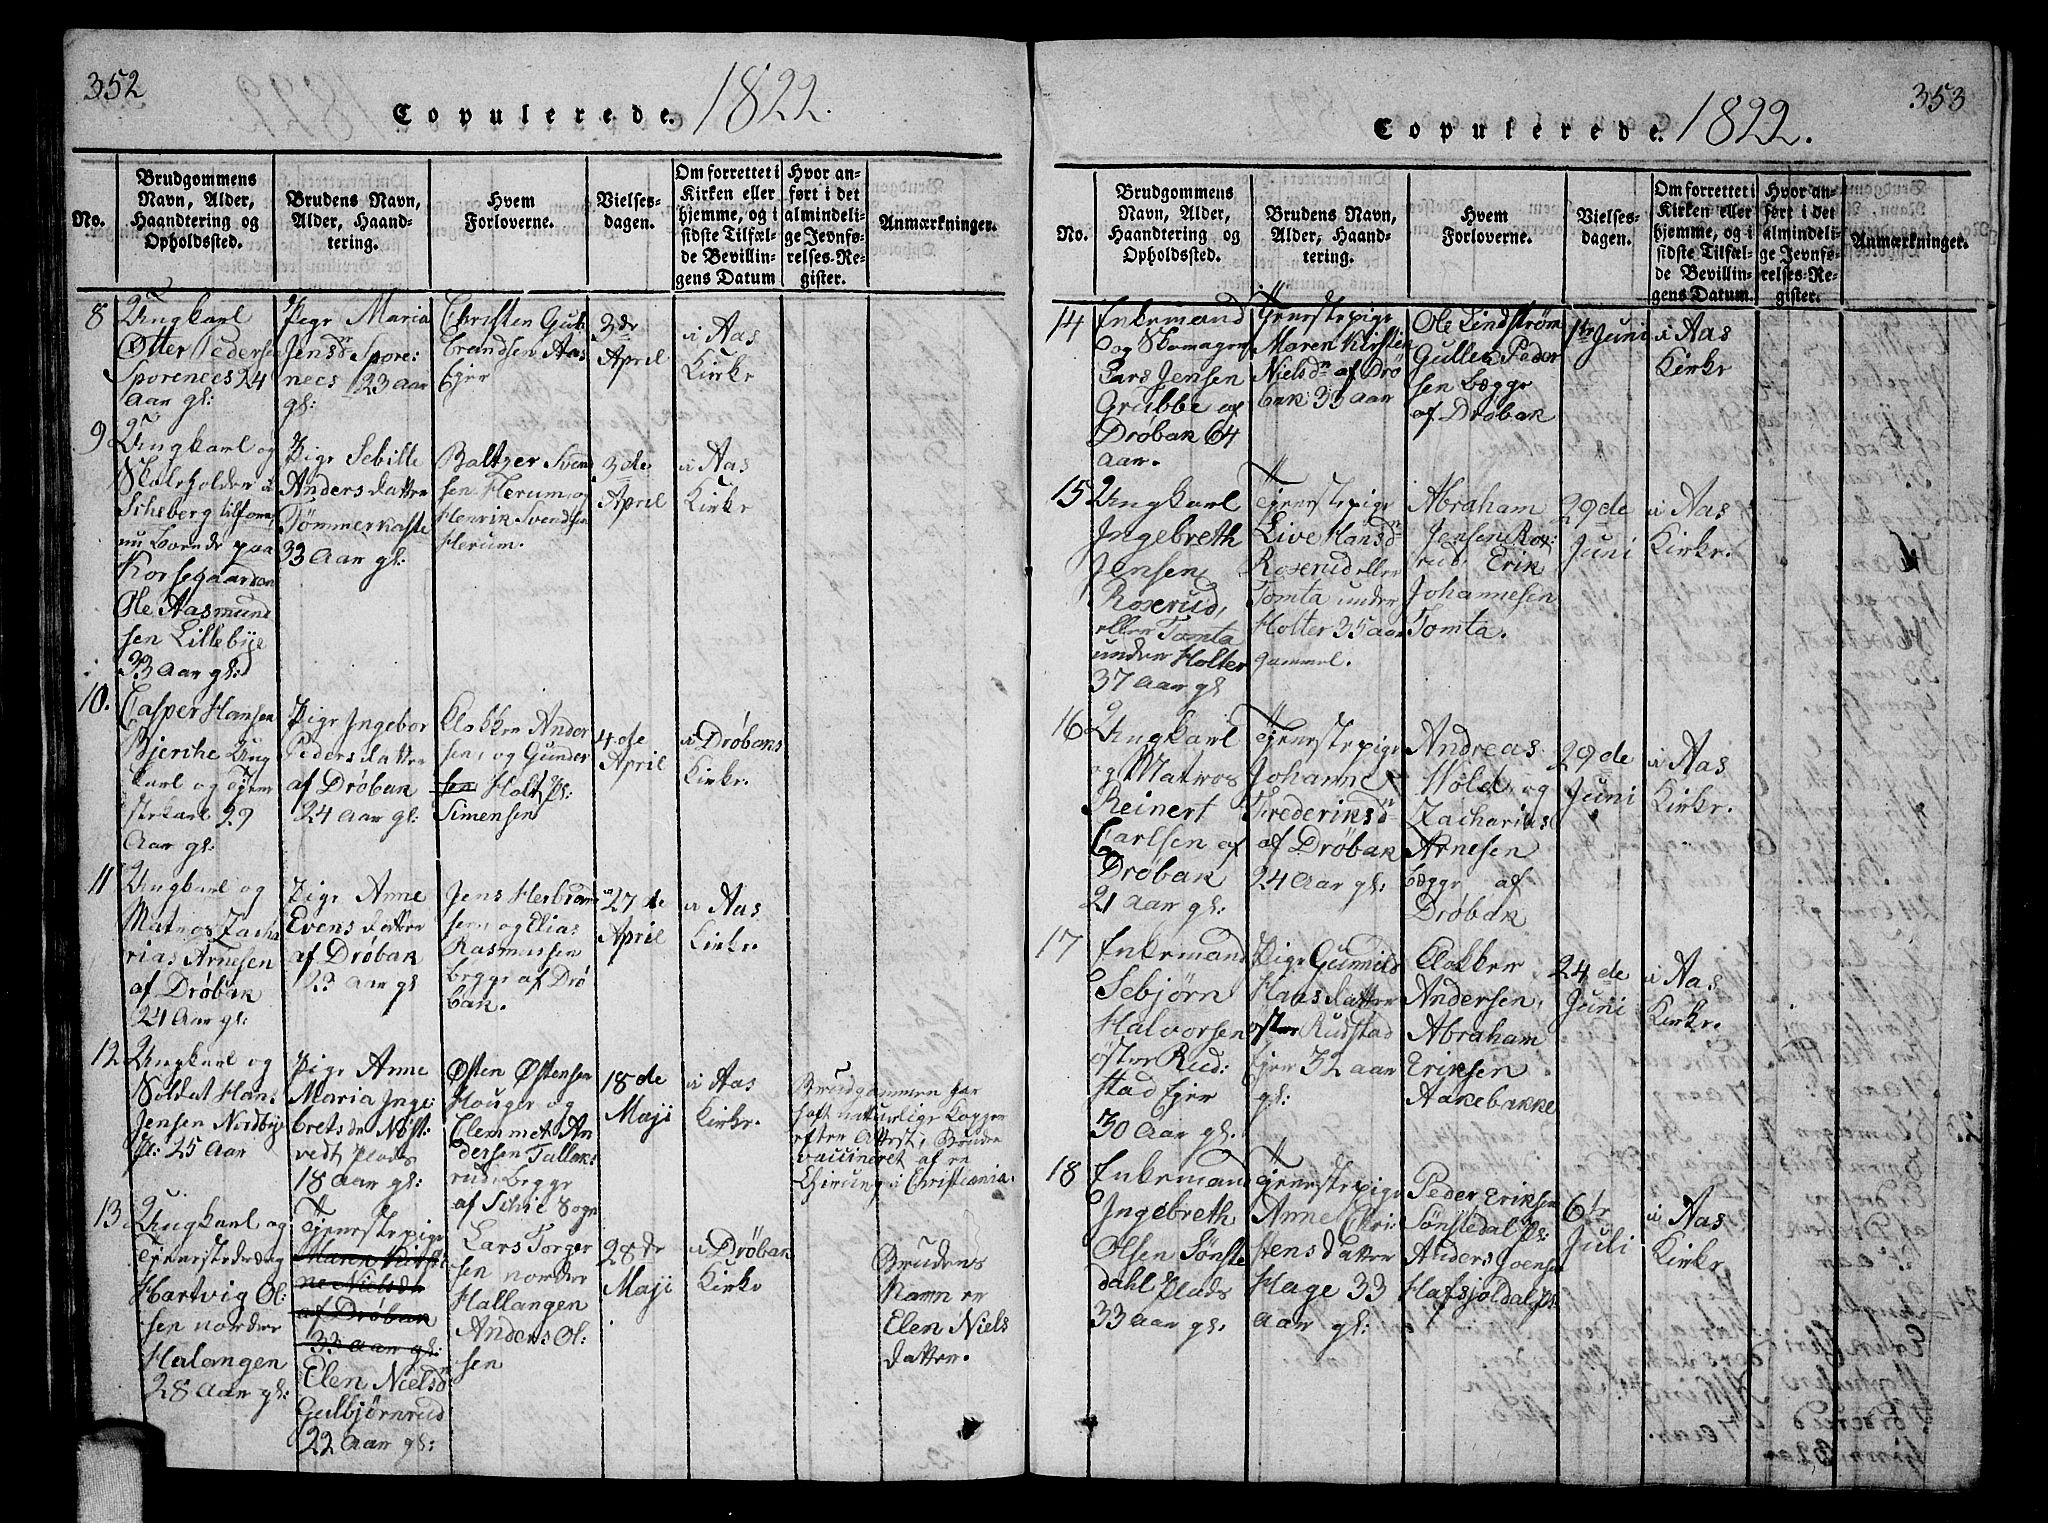 352
Copulerede. 1822.
No.
Brudgommens
Navn, Alder,
Haandtering og
Opholdssted.
Brudens Navn,
Alder, Haand-
tering.
Hvem
Forloverne.
Vielses-
dagen.
Om forrettet i
Kirken eller
hjemme, og i
sidste Tilfæl-
de Bevillin-
gens Datum
Hvor an-
ført i det
almindeli-
ge Jevnfø-
relses-Re-
gister.
Anmærkninger.
8
Ungkarl
Otter Pedersen
Sporenees 24
Aar gl:
Pige Maria
Jensdr Spore:
nees 23 aar
gl:
Christen Gul
brandsen Aas
Ejer
3de
April
i Aas
Kirke
9
Ungkarl og
Skoleholder i
Scheberg tilforn,
nu boende paa
Korsegaarden
Ole Aasmund
sen Lillebye
33 aar gl:
Pige Sebille
Andersdatter
Tømmerkaste
33 Aar gl:
Baltzer Svend
sen Herum, og
Henrik Svendsen
Herum.
3de
April
i Aas
Kirke
10.
Casper Hansen
Bjerche Ung
karl og Tjene
stekarl 29
Aar gl:
Pige Ingebor
Pedersdatter
af Drøbak
24 Aar gl:
Clokker Ander
sen, og Gunder
sen Holt Pl:
Simensen
4de
April
i Drøbaks
Kirke.
11
Ungkarl og
Matros Zacha
rias Arnesen
af Drøbak
24 Aar gl:
Pige Anne
Evensdatter
af Drøbak
23 aar gl
Jens Herbran
sen og Elias
Rasmussen
begge af Drø
bak.
27de
April
i Aas
Kirke.
12
Ungkarl og
Soldat Hans
Jensen Nordbye
Pl: 25 Aar
Pige Anne
Maria Inge:
bretsdr Nøst:
vedt Plads
18 aar gl:
Østen Østensen
Houger og
Clemmet An
dersen Tallaks
rud, begge
af Schie Sogn
18de
Maji
i Aas
Kirke.
Brudgommen har
haft naturlige Kopper
efter Attest, Bruden
vaccineret af en
Chirurg i Christiania.
13
Ungkarl og
Tjenestedreng
Hartvig Ol:
sen nordre
Halangen
28 Aar gl:
Tjenestepige
Maren Kirsti
ne Nielsdr
af Drøbak
33 aar gl:
Elen Nielsdr
Gulbjørnrud
22 Aar gl:
Lars Torger
sen nordre
Hallangen
Anders Ol:
sen
28de
Maji
i Drøbak
Kirke
Brudens
Navn er
Elen Niels
datter.
353
Copulerede. 1822.
No.
Brudgommens
Navn, Alder,
Haandtering og
Opholdssted.
Brudens Navn,
Alder, Haand-
tering.
Hvem
Forloverne.
Vielses-
dagen.
Om forrettet i
Kirken eller
hjemme, og i
sidste Tilfæl-
de Bevillin-
gens Datum.
Hvor an-
ført i det
almindeli-
ge Jevnfø-
relses-Re-
gister.
Anmærkninger.
14
Enkemand
og Skomager
Lars Jensen
Grubbe af
Drøbak 64
aar.
Tjenestepige
Maren Kirstin
Nielsdr af Drø
bak 33 aar
Ole Lindstrøm
Gullek Peder
sen begge
af Drøbak
1te Juni
i Aas
Kirke
15
Ungkarl
Ingebreth
Jensen
Roxerud,
eller Tomta
under Holter
37 aar gl
Tjenestepige
Live Hansdr
Roxerud eller
Tomta under
Holter 35 aar
gammel.
Abraham
Jensen Rox:
rud, Erik
Johannesen
Tomta.
29de
Juni
i Aas
Kirke.
16
Ungkarl
og Matros
Reinert
Carlsen af
Drøbak
21 aar gl:
Tjenestepige
Johanne
Frederiksdr
af Drøbak
24 Aar gl:
Andreas
Hold, og
Zacharias
Arnesen
begge af
Drøbak
29de
Juni
i Aas
Kirke.
17
Enkemand
Sebjørn
Halvorsen
øster Rud:
stad Ejer
30 Aar gl.
Pige Gunnild
Hansdatter
øster Rudstad
Ejer 32 aar
gl:
Clokker
Andersen,
Abraham
Eriksen
Aakebakke
24de
Juni
i Aas
Kirke.
18
Enkemand
Ingebreth
Olsen Sønste
dahl Plads
33 aar gl.
Tjenestepige
Anne Chri
stensdatter
Hage 33
aar gl:
Peder Eriksen
Sønstedal Pl:
Anders Joensen
Hafsjoldal Pl:
6te
Juli
i Aas
Kirke